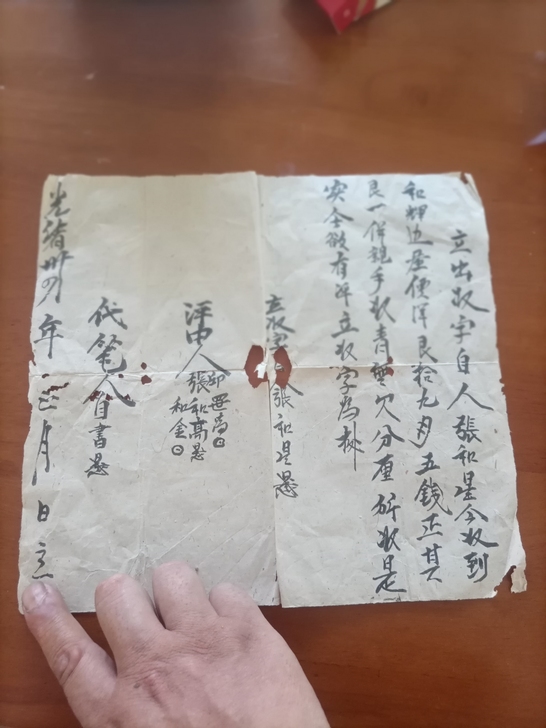 立出收字自人張和星今收到
和輝邊屋便洋艮拾九両五錢正其
艮一併親手收青無欠分厘所收是
实今欲有凴立收字為执
立收字人張和星
洋中人
邱罡高
張和高
和金
代筆人自書
光绪卅四年三月日立